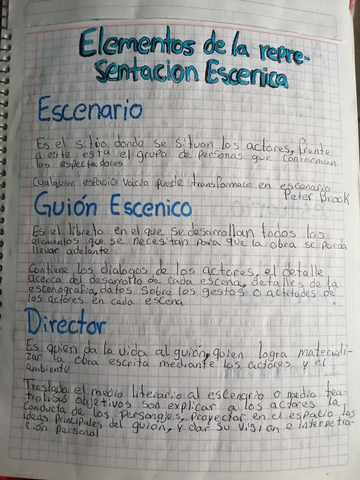 Elementos de la repre-
sentacion Escenica
Escenario
Es el sitio donde se situan los actores, frente
a este esta el grupo de personas que conforman
los espectadores
Cualquier espacio vacio puede transformace en escenario
Peter Brook
Guión Escenico
Es el libreto en el que se desarrollan todos los
elementos que se necesitan para que la obra se pueda
llevar adelante
Contiene los dialogos de los actores, el detalle
acerca del desarrollo de cada escena, detalles de la
escenografia, datos sobre los gestos o actitudes de
los actores en cada escena
Director
Es quien da la vida al guión, quien logra materiali-
zar la obra escrita mediante los actores y el
ambiente
Traslapa el medio literario al escenario o medio tea-
tral. Sus objetivos son explicar a los actores la
conducta de los personajes, Proyectar en el espacio las
ideas principales del guión, y dar su visión e interpreta-
ción personal